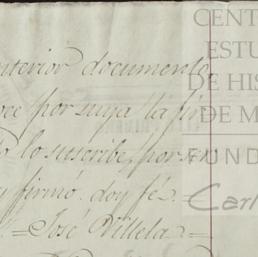 nterior documento,
oce por suya la fir
lo suscribe, por ser
y firmó. doy fé.=
=José Villela=
CENT
ESTU
DE HIS
DE M
FUND
Carl